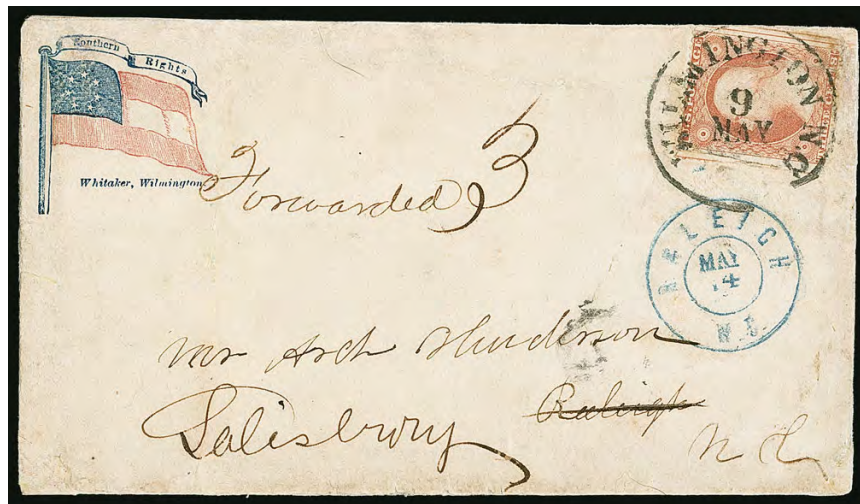 Southern Rights
Whitaker, Wilmington
WILMINGTON N.C
9
MAY
Forwarded 3
RALEIGH
MAY
14
N.C.
Mr Arch Henderson
Salisbury Raleigh
N C